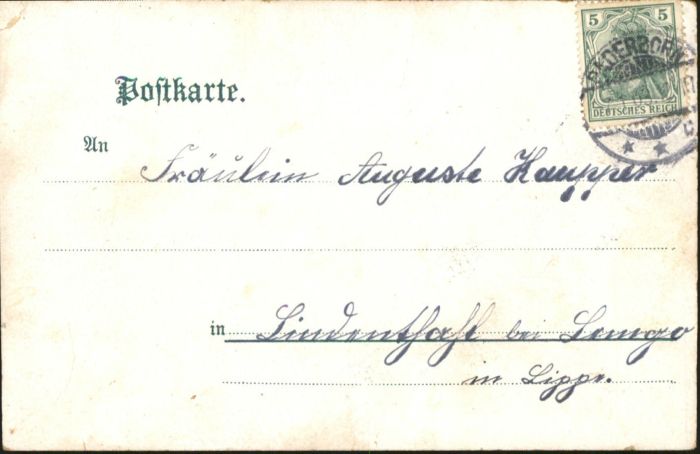 5 5
PADERBORN
DEUTSCHES REICH
Postkarte.
An Fräulein Auguste Kaupper
in Lindenthahl bei Lemgo
in Lippe.